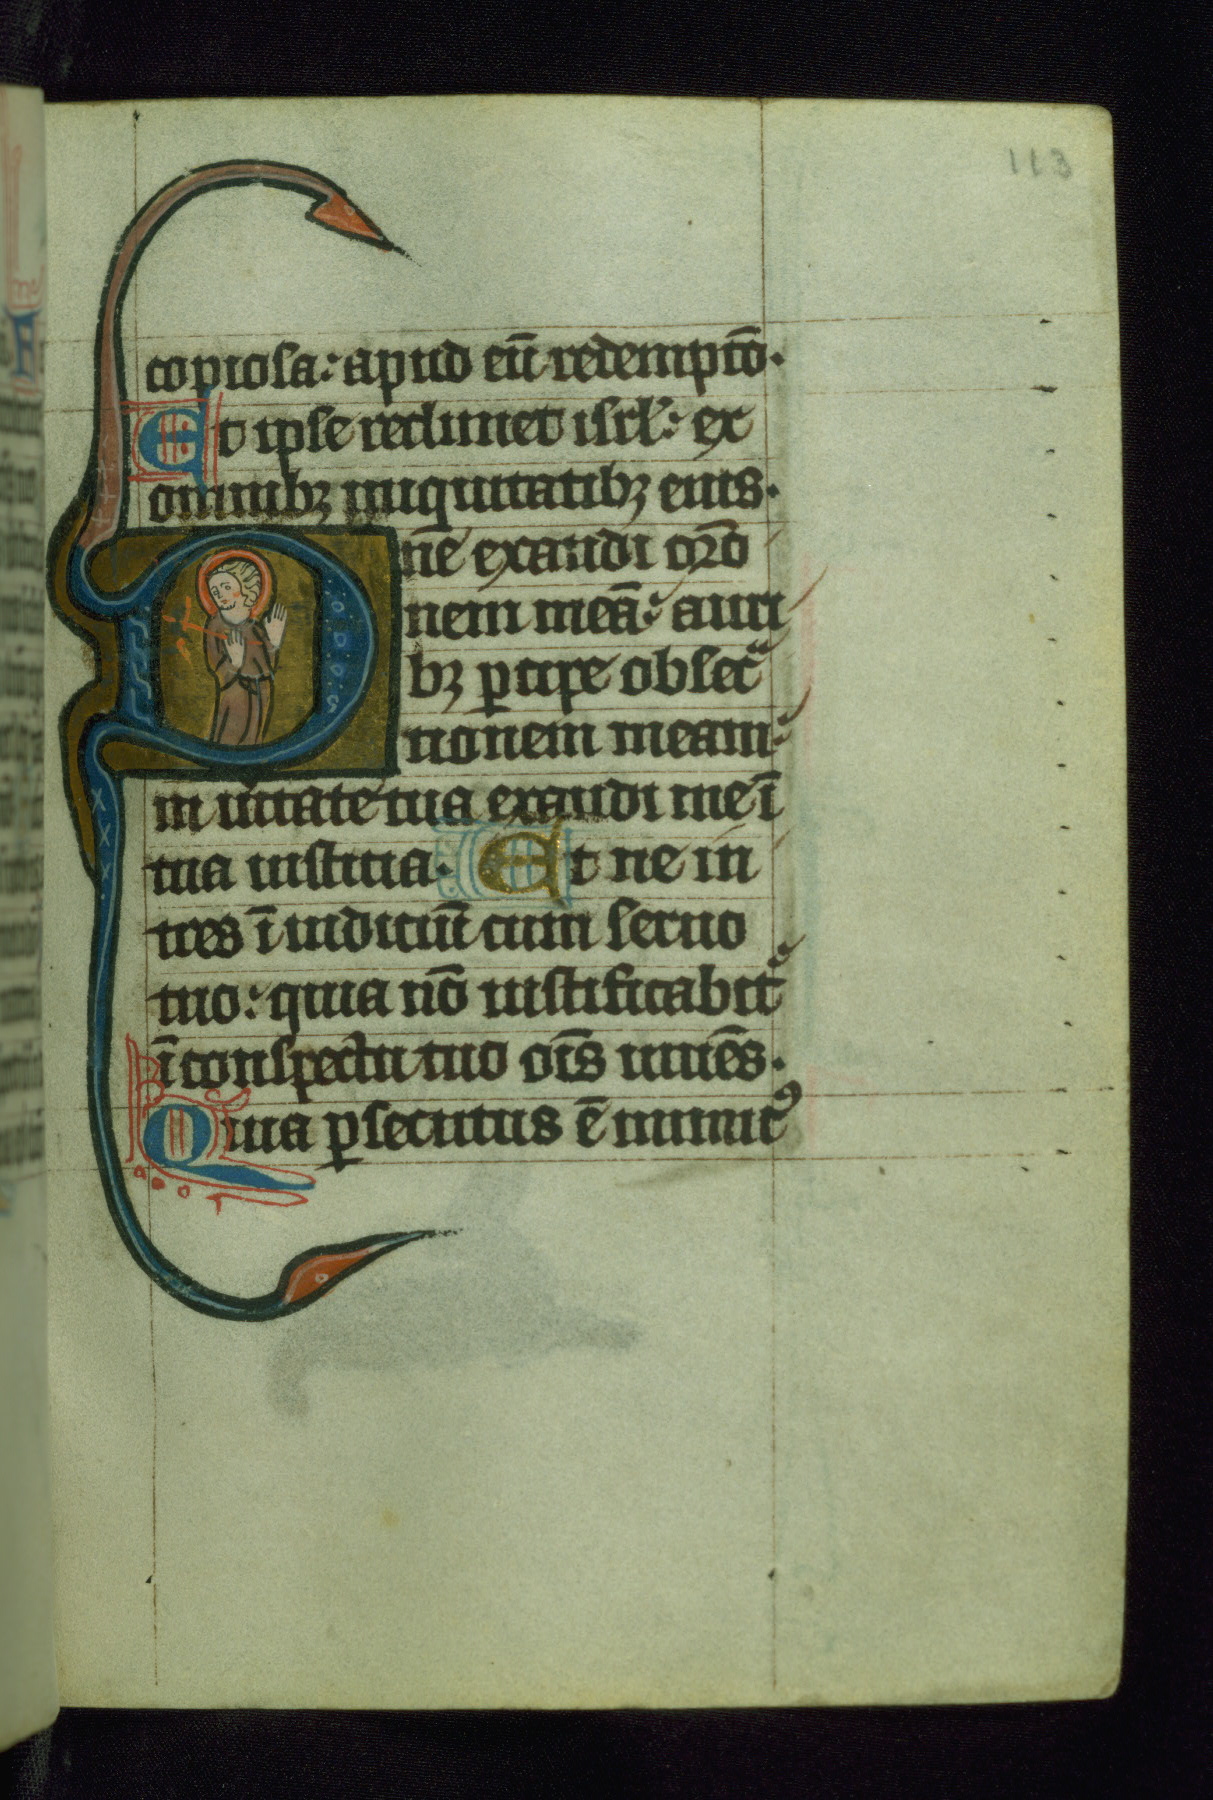 113
copiosa: apud eū redemptō.
Et ipse redimet isrl̓: ex
omnibꝫ iniquitatibꝫ eius.
Dn̄e exaudi orō
nem meā: auri
bꝫ ꝑcipe obsecͣ
tionem meam:
in u̓itate tua exaudi me ī
tua iusticia. Et ne in
tres ī iudiciū cum seruo
tuo: quia nō iustificabit᷑
ī conspectu tuo oīs uiuēs.
Quia ꝑsecutus ē inimicꝰ